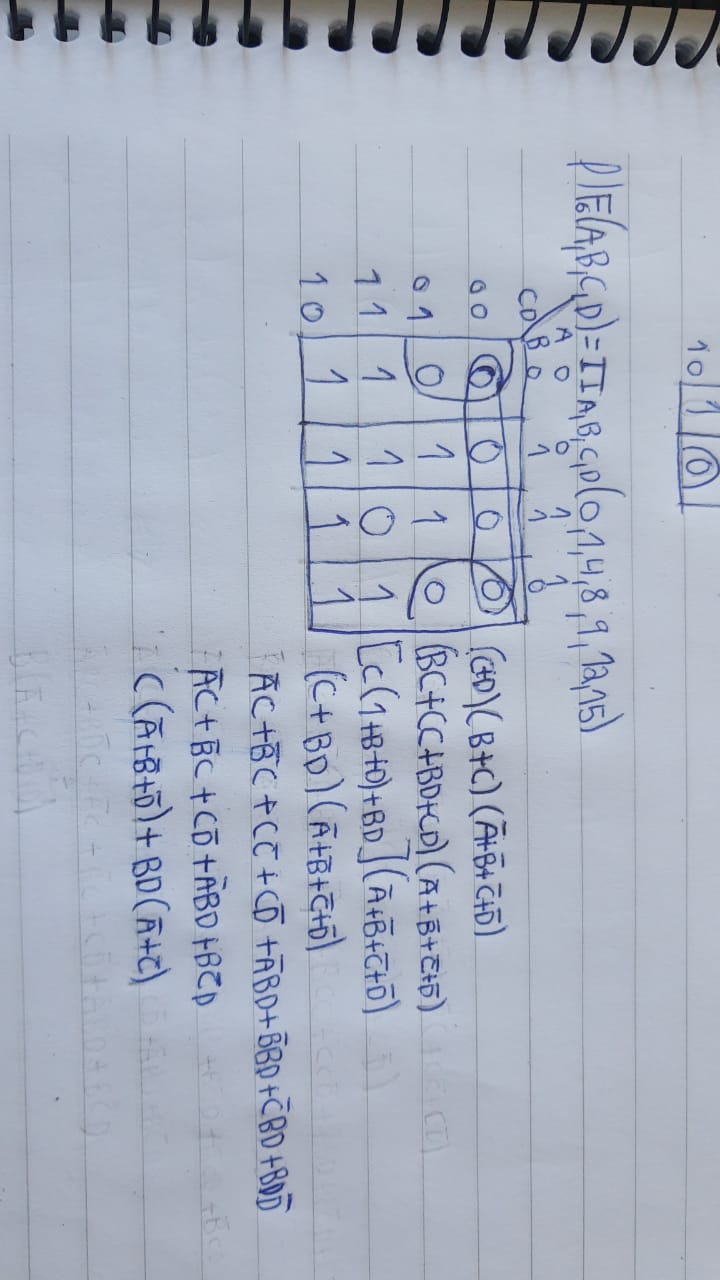 1 0 1 0
f) F₆(A,B,C,D) = Π A,B,C,D (0,1,4,8,9,12,15)
A 0 0 1 1
CD B 0 1 1 0
0 0 0 0 0 0
0 1 0 1 1 0
1 1 1 1 0 1
1 0 1 1 1 1
(C+D)(B+C)(A̅+B̅+C̅+D̅)
(BC+CC+BD+CD)(A̅+B̅+C̅+D̅)
[C(1+B+D)+BD](A̅+B̅+C̅+D̅)
(C+BD)(A̅+B̅+C̅+D̅)
A̅C+B̅C+CC̅+CD̅+A̅BD+B̅BD+C̅BD+BDD̅
A̅C+B̅C+CD̅+A̅BD+BC̅D
C(A̅+B̅+D̅)+BD(A̅+C̅)